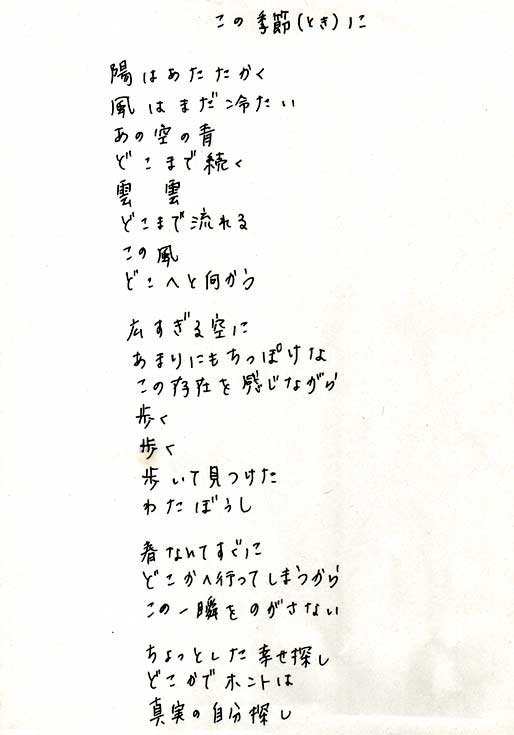 この季節(とき)に
陽はあたたかく
風はまだ冷たい
あの空の青
どこまで続く
雲 雲
どこまで流れる
この風
どこへと何かう
広すぎる空に
あまりにもちっぽけな
この存在を感じながら
歩く
歩く
歩いて見つけた
わたぼうし
春なんてすぐに
どこかへ行ってしまうから
この一瞬をのがさない
ちょっとした幸せ探し
どこかでホントは
真実の自分探し